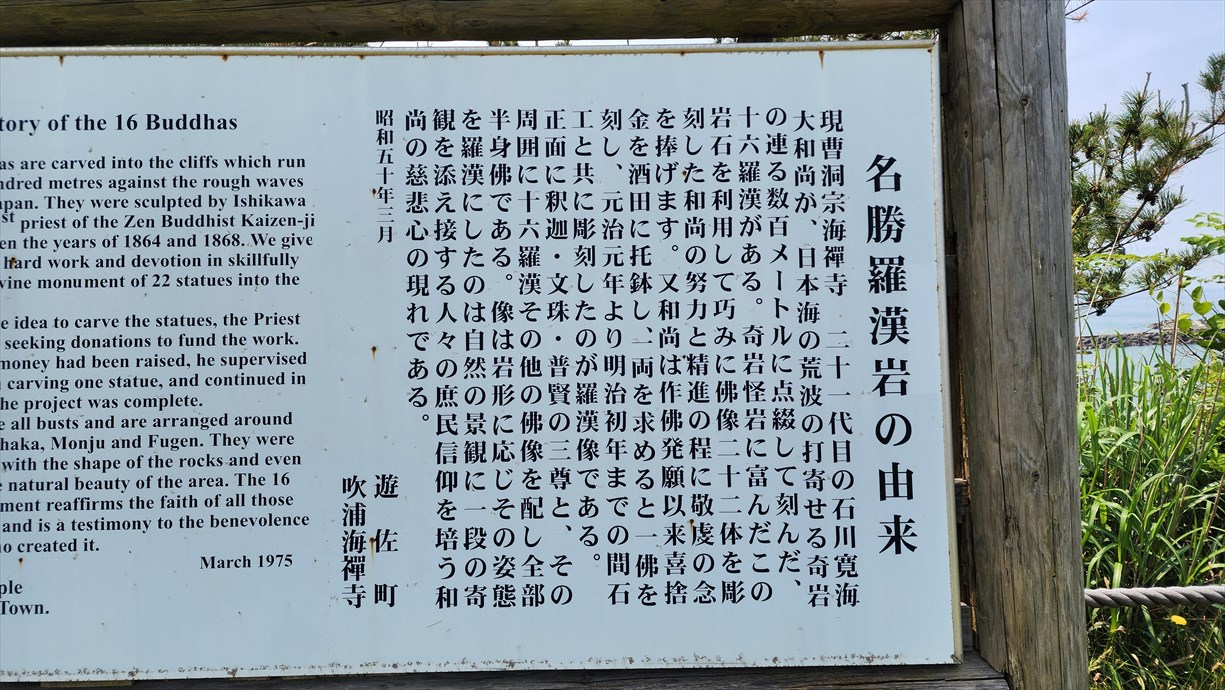 名勝羅漢岩の由来
現曹洞宗海禪寺 二十一代目の石川寛海
大和尚が、日本海の荒波の打寄せる奇岩
の連る数百メートルに点綴して刻んだ、
十六羅漢がある。奇岩怪岩に富んだこの
岩石を利用して巧みに佛像二十二体を彫
刻した和尚の努力と精進の程に敬虔の念
を捧げます。又和尚は作佛発願以来喜捨
金を酒田に托鉢し、一両を求めると一佛を
刻し、元治元年より明治初年までの間石
工と共に彫刻したのが羅漢像である。
正面に釈迦・文珠・普賢の三尊と、その
周囲に十六羅漢その他の佛像を配し全部
半身佛である。像は岩形に応じその姿態
を羅漢にしたのは自然の景観に一段の寄
観を添え接する人々の庶民信仰を培う和
尚の慈悲心の現れである。
昭和五十年三月
遊佐町
吹浦海禪寺
tory of the 16 Buddhas
as are carved into the cliffs which run
ndred metres against the rough waves
apan. They were sculpted by Ishikawa
st priest of the Zen Buddhist Kaizen-ji
en the years of 1864 and 1868. We give
hard work and devotion in skillfully
vine monument of 22 statues into the
e idea to carve the statues, the Priest
seeking donations to fund the work.
money had been raised, he supervised
carving one statue, and continued in
he project was complete.
e all busts and are arranged around
haka, Monju and Fugen. They were
with the shape of the rocks and even
natural beauty of the area. The 16
ment reaffirms the faith of all those
and is a testimony to the benevolence
o created it.
March 1975
ple
Town.